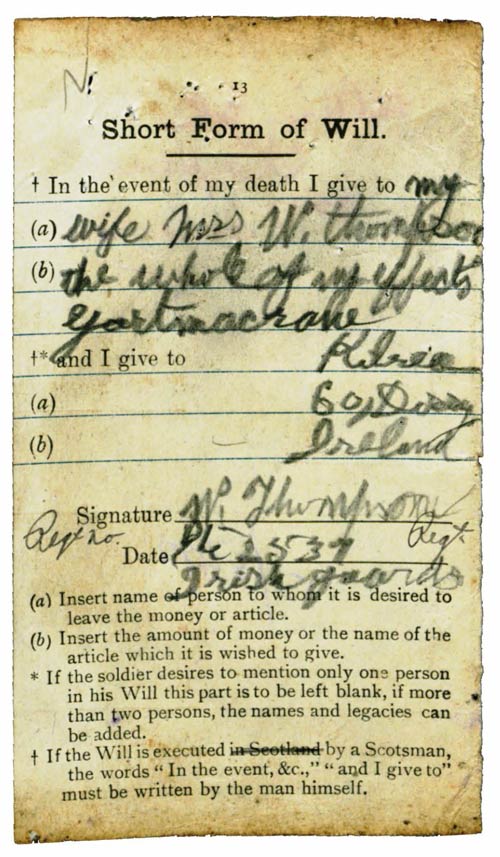 N.
13
Short Form of Will.
† In the event of my death I give to my
(a) wife Mrs W. Thompson
(b) the whole of my effects
Gortmacrane
†* and I give to Kilrea
(a) Co Derry
(b) Ireland
Signature W. Thompson
Regt no. Regt.
Date Pte 2537
Irish guards
(a) Insert name of person to whom it is desired to
leave the money or article.
(b) Insert the amount of money or the name of the
article which it is wished to give.
* If the soldier desires to mention only one person
in his Will this part is to be left blank, if more
than two persons, the names and legacies can
be added.
† If the Will is executed in Scotland by a Scotsman,
the words “ In the event, &c.,” “ and I give to”
must be written by the man himself.